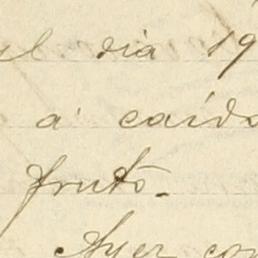 el dia 19
á caída
fruto.
Ayer con